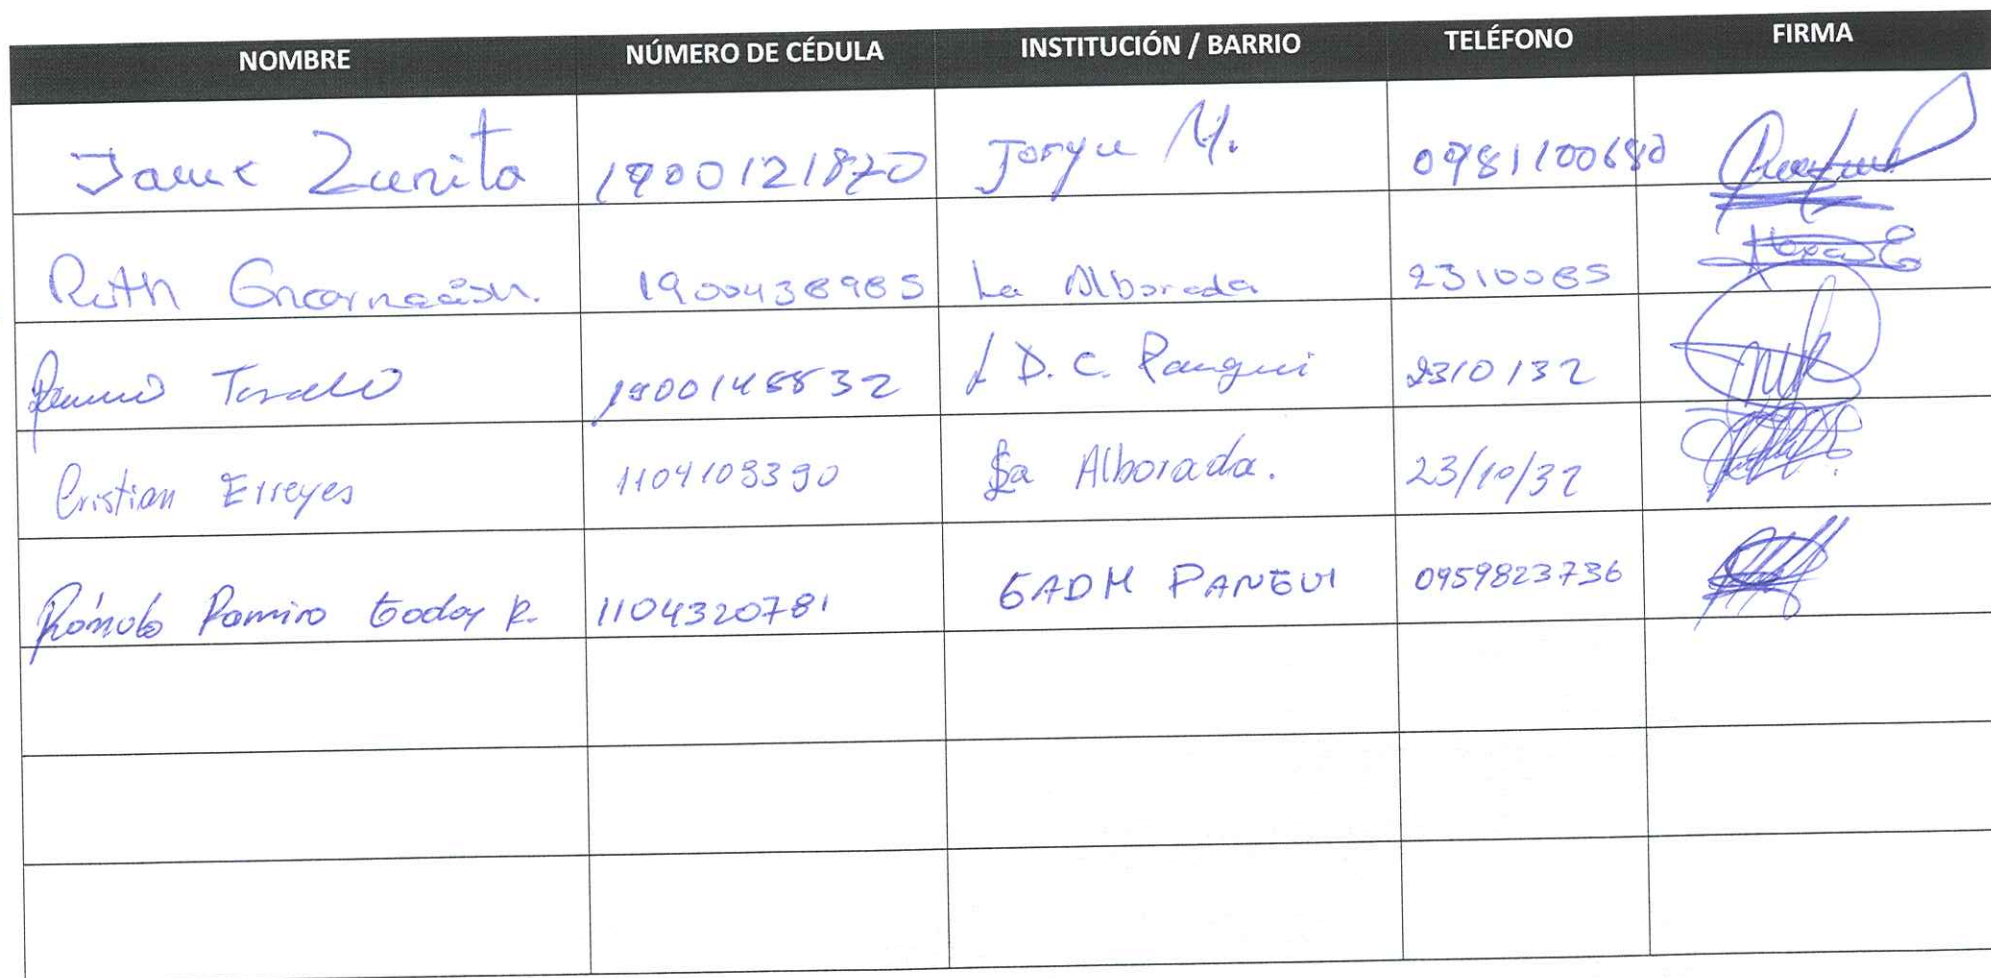 NOMBRE NÚMERO DE CÉDULA INSTITUCIÓN / BARRIO TELÉFONO FIRMA
Jaime Zunita 1900121870 Jorge M. 0981100680
Ruth Encarnación. 1900438985 La Alborada 2310085
1900148832 D.C. Pangui 2310132
Cristian Erreyes 1104109390 La Alborada. 23/10/32
Rómulo Ramiro Godoy R. 1104320781 GADM PANGUI 0959823736